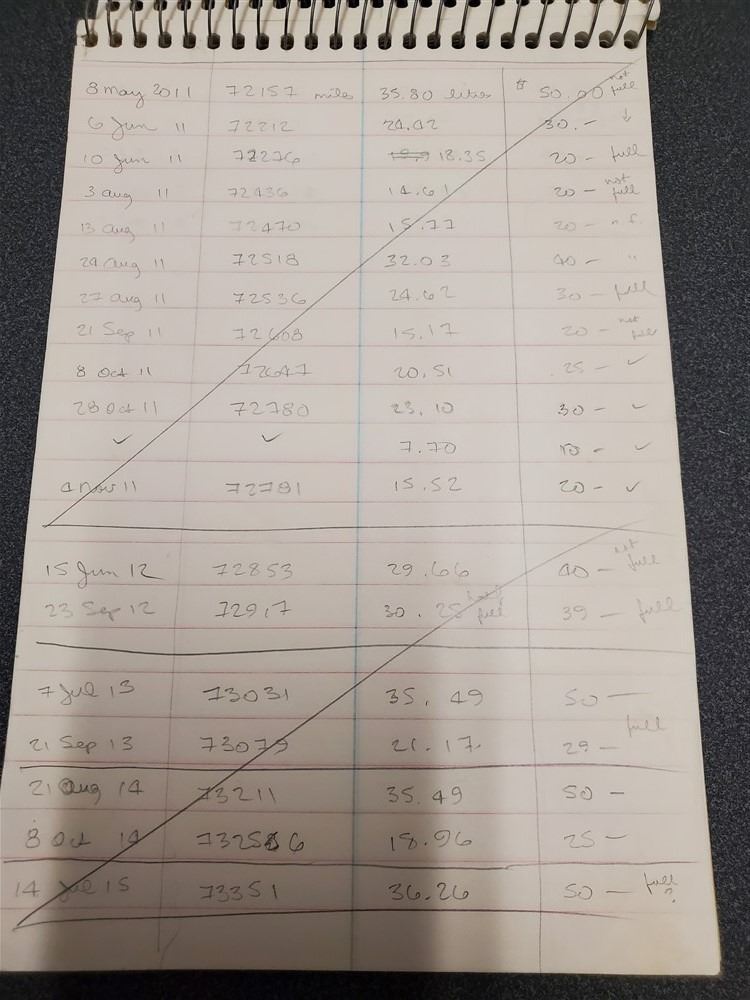 8 May 2011 72157 miles 35.80 litres $ 50.00 not full
6 Jun 11 72212 24.42 30.- ↓
10 Jun 11 72276 18.35 20 - full
3 Aug 11 72436 14.61 20 - not full
13 Aug 11 72470 15.77 20 - n.f.
24 Aug 11 72518 32.03 40 - "
27 Aug 11 72536 24.62 30 - full
21 Sep 11 72608 15.17 20 - not full
8 Oct 11 72647 20.51 25 - ✓
28 Oct 11 72780 23.10 30 - ✓
✓ ✓ 7.70 10 - ✓
4 Nov 11 72781 15.52 20 - ✓
15 Jun 12 72853 29.66 40 - not full
23 Sep 12 72917 30.25 full 39 - full
7 Jul 13 73031 35.49 50 -
21 Sep 13 73079 21.17 29 - full
21 Aug 14 73211 35.49 50 -
8 Oct 14 18.96 25 -
14 Jul 15 73351 36.26 50 - full ?